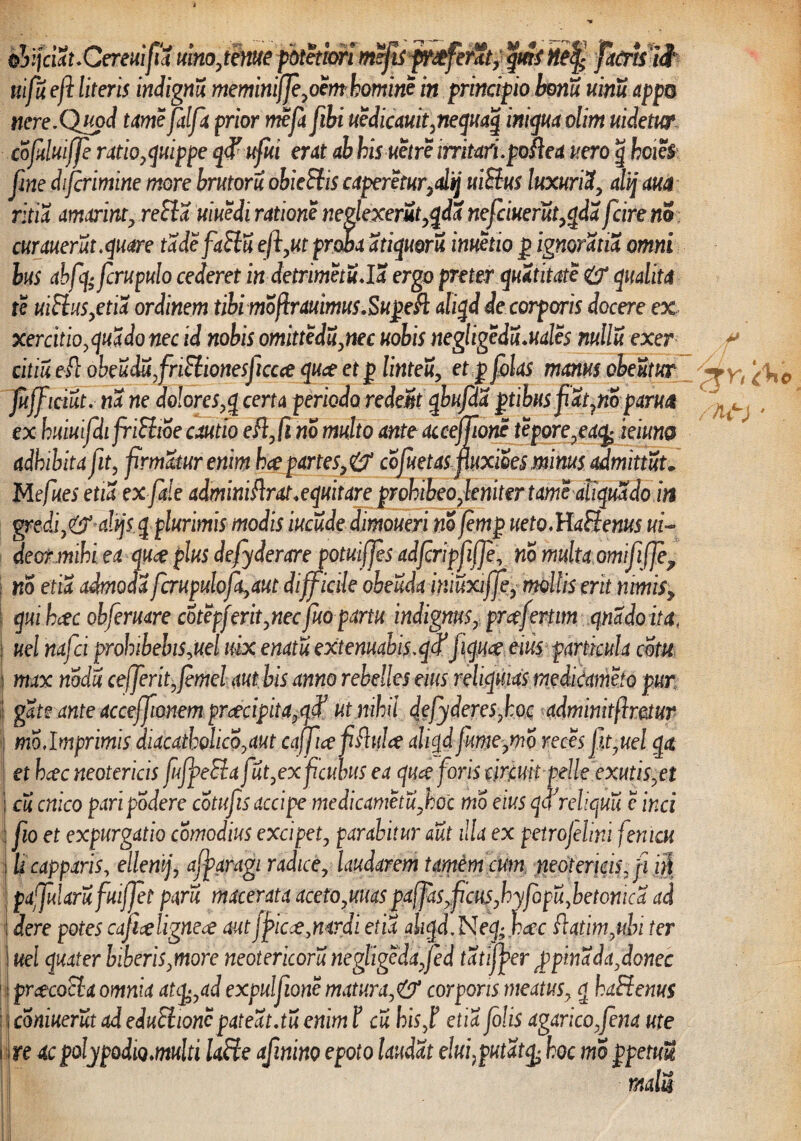 obijciāt.Cereuisiā uino,tenue potētiori mēsis præferāt, quis neq; sacris id
uisū est literis indignū meminisse,oēm hominē in principio bonū uinū appo
nere.Quod tamē falsa prior mēsa sibi uēdicauit,nequaq̄ iniqua olim uidetur
cōsuluisse ratio,quippe qđ usui erat ab his uētrē irritari.postea uero q̄ hoīes
sine discrimine more brutorū obiectis caperētur,alij uictus luxuriā, alij aua
ritiā amarint, rectā uiuēdi rationē neglexerūt,qdā nesciuerūt,qdā scire nō
curauerūt.quare tādē factū est,ut proba ātiquorū inuētio p ignorātiā omni
bus absq; scrupulo cederet in detrimētū.Iā ergo preter quātitatē & qualita
tē uictus,etiā ordinem tibi mōstrauimus.Supest aliqd de corporis docere ex
xercitio,quādo nec id nobis omittēdū,nec uobis negligēdū.uales nullū exer
citiū est obeūdū,frictiones siccæ quæ et p linteū, et p solas manus obeūtur
sufficiūt. nā ne dolores,q certa periodo redeūt qbusdā ptibus fiāt,nō parua
ex huiusdi frictiōe cautio est,si nō multo ante accessionē tēpore,eaq; ieiuno
adhibita sit, firmātur enim hæ partes,& cōsuetas fluxiōes minus admittūt.
Mesues etiā ex sale administrat.equitare prohibeo,leniter tamē aliquādo in
gredi,& alijs q plurimis modis iucūde dimoueri nō semp ueto.Hactenus ui-
deor mihi ea quæ plus desyderare potuisses adscripsisse, nō multa omisisse,
nō etiā admodā scrupulosa,aut difficile obeūda iniūxisse, mollis erit nimis,
qui hæc obseruare cōtēpserit,nec suo partu indignus, præsertim qnādo ita,
uel nasci prohibebis,uel uix enatū extenuabis.qđ siquæ eius particula cōtu
max nōdū cesserit,semel aut bis anno rebelles eius reliquias medicamēto pur
gate ante accessionem præcipita,qđ ut nihil desyderes,hoc adminitstretur
mō.Imprimis diacatholicō,aut cassiæ fistulæ aliqd sume,mō recēs sit,uel qa
et hæc neotericis suspecta sūt,ex ficubus ea quæ foris circuit pelle exutis,et
cū cnico pari pōdere cōtusis accipe medicamētū,hoc mō eius qđ reliquū ē inci
sio et expurgatio cōmodius excipet, parabitur aūt illa ex petroselini fenicu
li capparis, ellenij, asparagi radice, laudarem tamēm cum neotericis, si iñ
passularū fuisset parū macerata aceto,uuas passas,ficus,hysopū,betonicā ad
dere potes casiæ ligneæ aut spicæ,nardi etiā aliqd.Neq; hæc statim,ubi ter
uel quater biberis,more neotericorū negligēda,sed tātisper ppināda,donec
præcocta omnia atq;,ad expulsionē matura,& corporis meatus, q hactenus
cōniuerūt ad eductionē pateāt.tū enim ł cū his,ł etiā solis agarico,sena ute
re ac polypodio.multi lacte asinino epoto laudāt elui,putātq; hoc mō ppetuū
malū